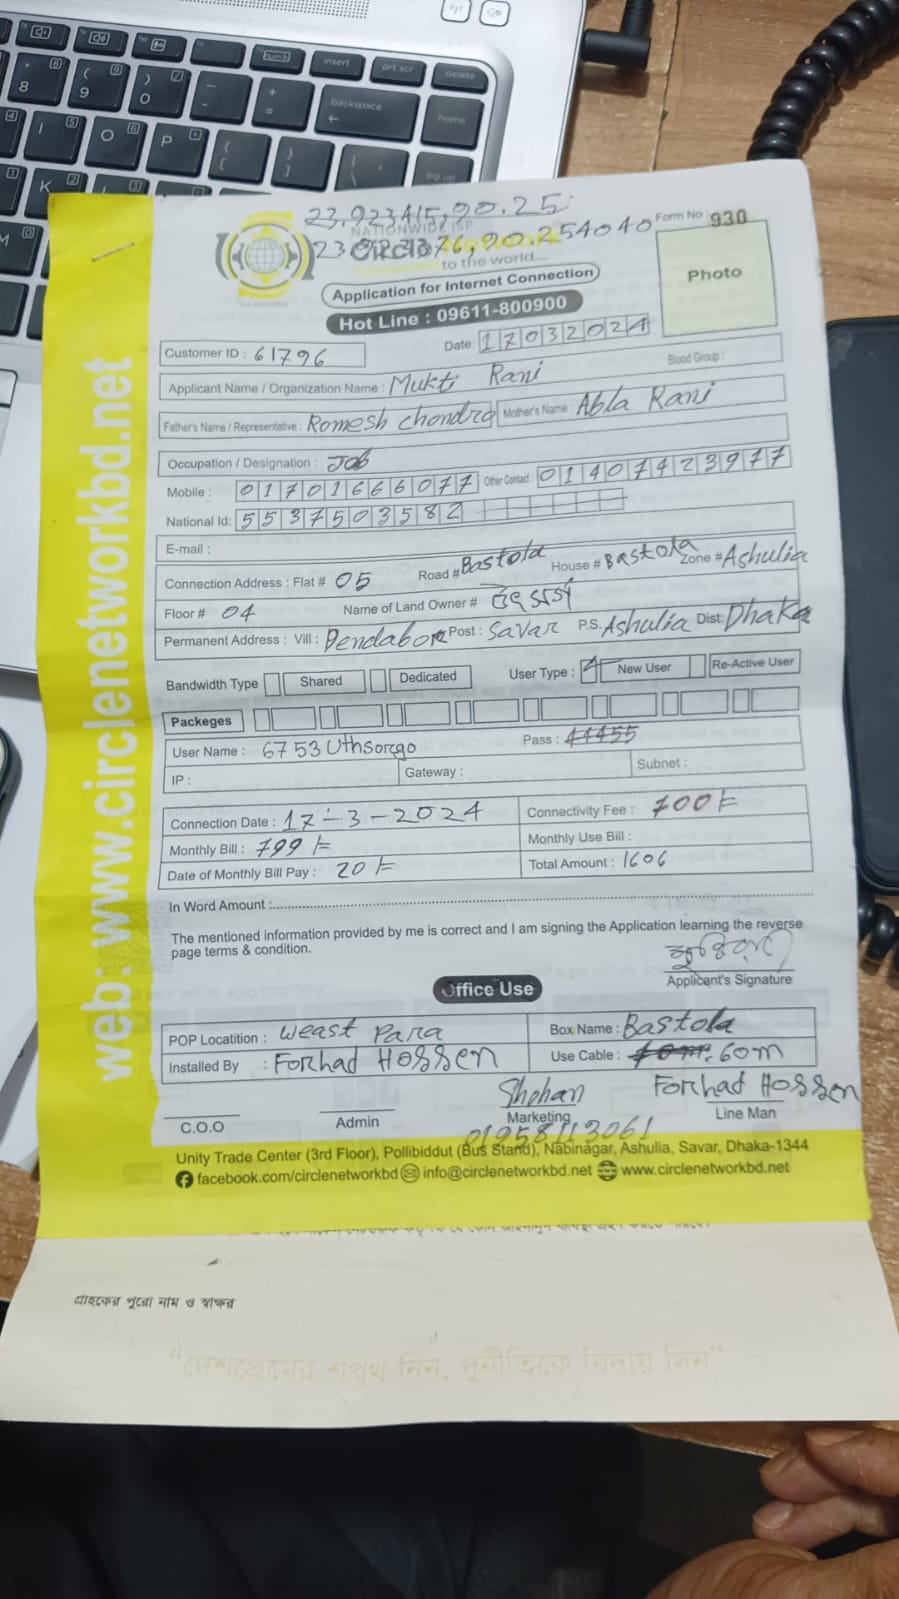 23.923415,90.25
NATIONWIDE ISP
Circle Network
to the world...
Form No : 930
Photo
Application for Internet Connection
Hot Line : 09611-800900
Customer ID : 61796 Date: 17032024
Applicant Name / Organization Name : Mukti Rani Blood Group :
Father's Name / Representative : Romesh chondro Mother's Name : Abla Rani
Occupation / Designation : Job
Mobile : 01701666077 Other Contact : 01407423977
National Id: 5537503582
E-mail :
Connection Address : Flat # 05 Road # Bastola House # Bastola Zone # Ashulia
Floor # 04 Name of Land Owner #
Permanent Address : Vill : Dendabor Post : Savar P.S. Ashulia Dist: Dhaka
Bandwidth Type Shared Dedicated User Type : New User Re-Active User
Packeges
User Name : 6753 Uthsorgo Pass : 44455
IP : Gateway : Subnet :
Connection Date : 17-3-2024 Connectivity Fee : 700/=
Monthly Bill : 799/= Monthly Use Bill :
Date of Monthly Bill Pay : 20/= Total Amount : 1606
In Word Amount :
The mentioned information provided by me is correct and I am signing the Application learning the reverse
page terms & condition.
Applicant's Signature
Office Use
POP Locatition : Weast Para Box Name : Bastola
Installed By : Forhad Hossen Use Cable : 60m
Shohan Forhad Hossen
C.O.O Admin Marketing Line Man
01958113061
Unity Trade Center (3rd Floor), Pollibiddut (Bus Stand), Nabinagar, Ashulia, Savar, Dhaka-1344
facebook.com/circlenetworkbd info@circlenetworkbd.net www.circlenetworkbd.net
web: www.circlenetworkbd.net
গ্রাহকের পুরো নাম ও স্বাক্ষর
"দেশপ্রেমের শপথ নিন, দুর্নীতিকে বিদায় দিন"